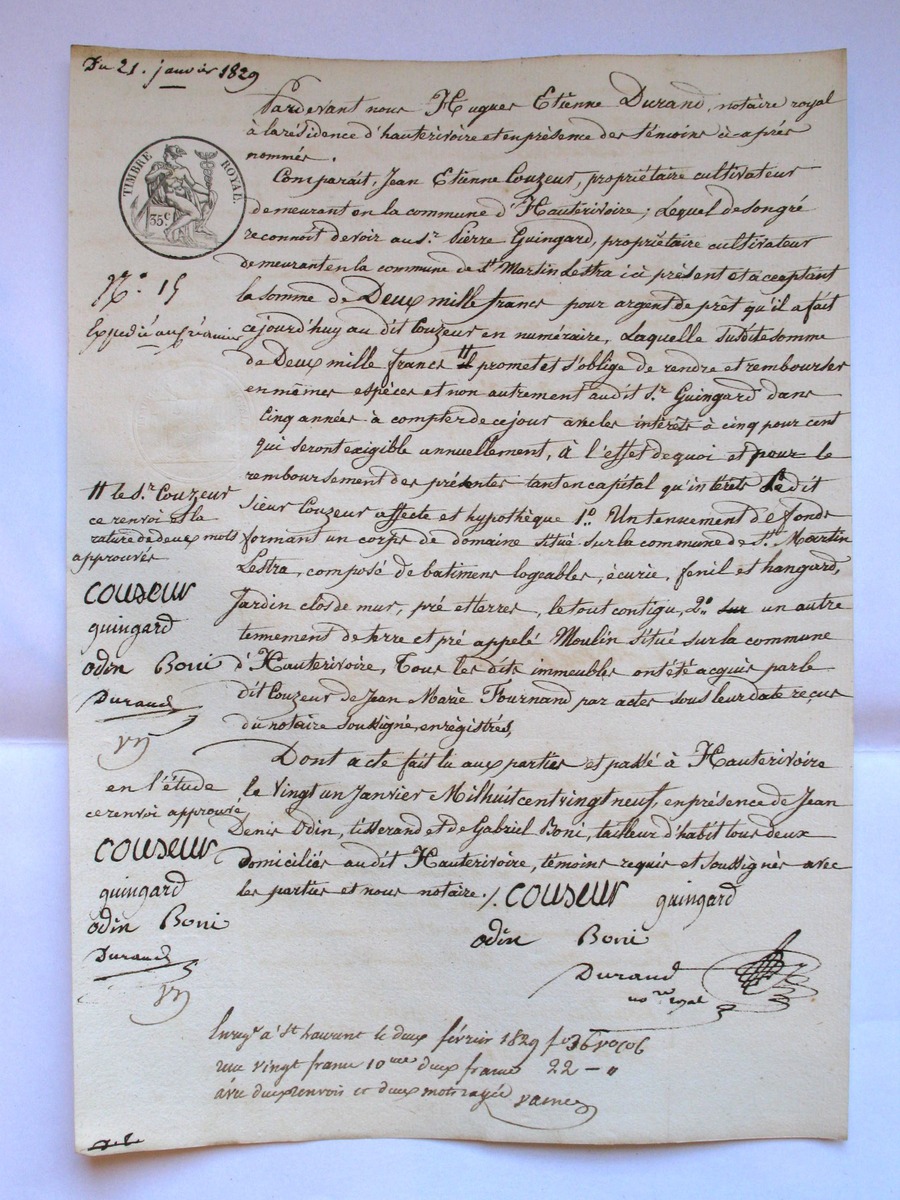 Du 21. janvier 1829
Pardevant nous Hugues Etienne Durand, notaire royal
à la résidence d'hauterivoire et en présence des témoins ci après
nommés.
TIMBRE ROYAL
35 c
Comparait, Jean Etienne Couzeur, propriétaire cultivateur
demeurant en la commune d'Hauterivoire; Lequel de son gré
reconnoit devoir au sr. Pierre Guingard, propriétaire cultivateur
demeurant en la commune de St. Martin Lestra ici présent et acceptant
la somme de Deux mille francs pour argent de prêt qu'il a fait
cejourd'huy au dit Couzeur en numéraire, Laquelle susdite somme
de Deux mille francs # il promet et s'oblige de rendre et rembourser
en mêmes espèces et non autrement au dit Sr. Guingard dans
Cinq années à compter de ce jour avec les intérêts à cinq pour cent
qui seront exigible annuellement, à l'effet de quoi et pour le
remboursement des présentes tant en capital qu'intérêts Le dit
Sieur Couzeur affecte et hypothèque 1o. Un tennement de fonds
formant un corps de domaine situé sur la commune de St. Martin
Lestra, composé de batimens logeables, écurie, fenil et hangard,
Jardin clos de mur, pré et terres, le tout contigu, 2o. sur un autre
tennement de terre et pré appelé Moulin situé sur la commune
d'Hauterivoire, Tous les dits immeubles ont été acquis par le
dit Couzeur de Jean Marie Fournand par actes sous leur date reçus
du notaire soussigné, enregistrés,
Dont acte fait lu aux parties et passé à Hauterivoire
le Vingt un Janvier Mil huit cent vingt neuf, en présence de Jean
Denis Odin, tisserand et de Gabriel Boni, tailleur d'habit tous deux
domiciliés au dit Hauterivoire, témoins requis et soussignés avec
les parties et nous notaire ./. couseur guingard
odin Boni
Durand
no.re royal
No. 15
Expédié au créancier
# le Sr. Couzeur
ce renvoi et la
rature de deux mots
approuvés
couseur
guingard
odin Boni
Durand
en l'étude
ce renvoi approuvé
couseur
guingard
odin Boni
Durand
Enregé à St Laurent le deux février 1829 fo 36 vo c 6
reçu vingt francs 10me deux francs 22 - "
avec deux renvois et deux mots rayés